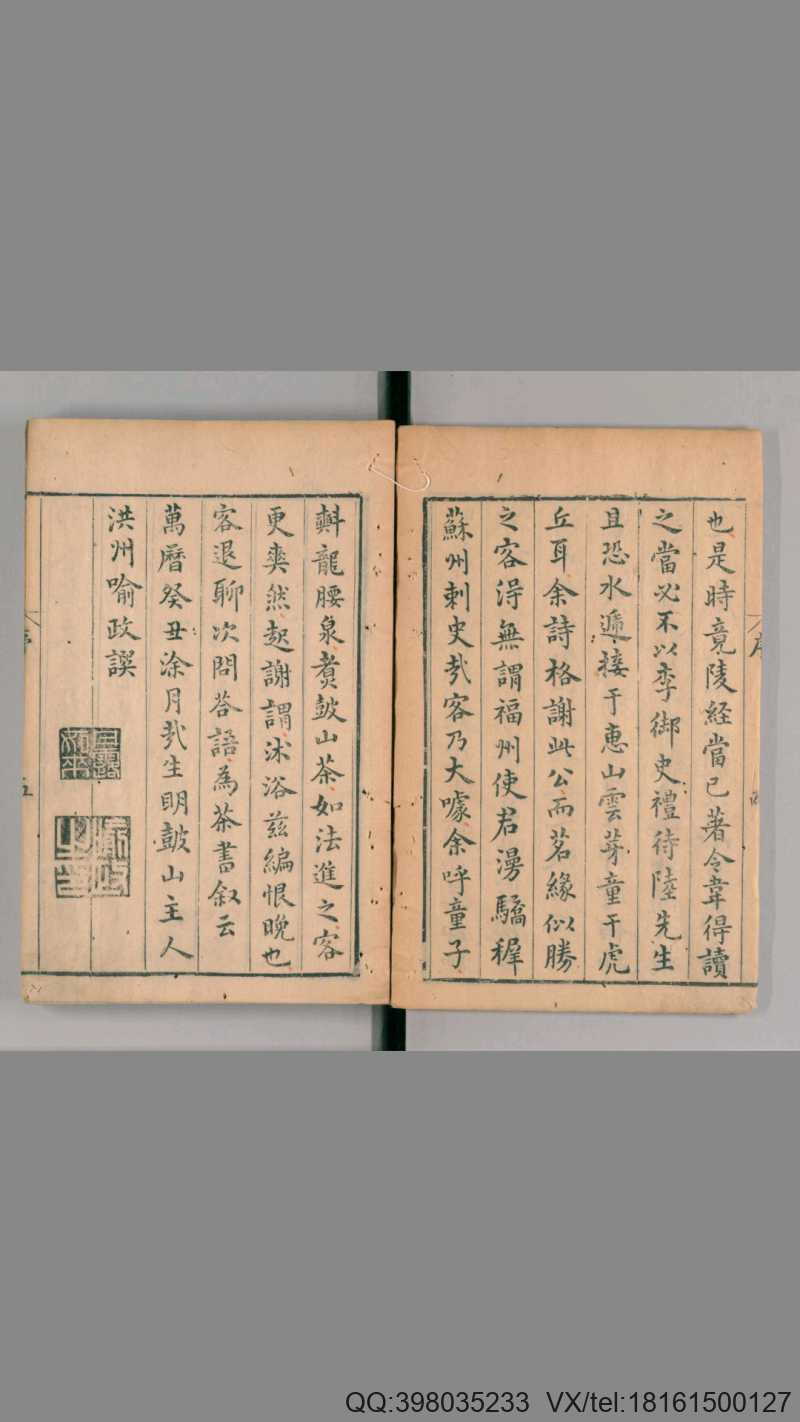 也是時竟陵經當已著令韋得讀
之當必不以季御史禮待陸先生
且恐水遞接于惠山雲芽童干虎
丘耳余詩格謝此公而茗緣似勝
之客得無謂福州使君漫驕穉
蘇州刺史哉客乃大噱余呼童子
㪺龍腰泉煑皷山茶如法進之客
更爽然起謝謂沐浴茲編恨晚也
客退聊次問荅語為茶書叙云
萬曆癸丑涂月哉生明皷山主人
洪州喻政譔
序
五
QQ:398035233 VX/tel:18161500127